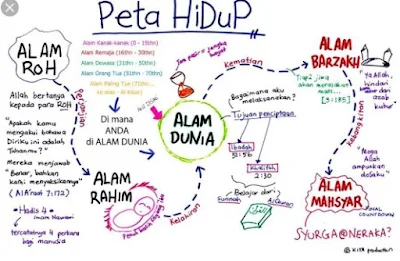 Peta HiDuP
ALAM
ROH
Allah bertanya
kepada para ROH
"Apakah kamu
mengakui bahawa
Diriku ini adalah
Tuhanmu?"
Mereka menjawab
"Benar, bahkan
kami menyaksikannya"
(Al A'raaf 7:172)
Hadis 4
Imam Nawawi
tercatatnya 4 perkara
bagi manusia
Perjanjian
Alam Kanak-kanak (0 - 15thn)
Alam Remaja (16thn - 30thn)
Alam Dewasa (31thn - 50thn)
Alam Orang Tua (51thn - 70thn)
Alam Paling Tua (71thn...
Di mana
ANDA
di ALAM DUNIA
ALAM
RAHIM
Kelahiran
ALAM
DUNIA
Kematian
Bagaimana aku
melaksanakan?
Tujuan penciptaan
Ibadah
51:56
Khalifah
2:30
Belajar dari:
Sunnah
ALAM
BARZAKH
Tiap2 jiwa
akan merasakan
[3:185]
"Ya Allah,
hindari
azab
kubur"
Kebangkitan
"Moga
Allah
ampunkan
dosaku"
ALAM
MAHSYAR
SYURGA@NERAKA?